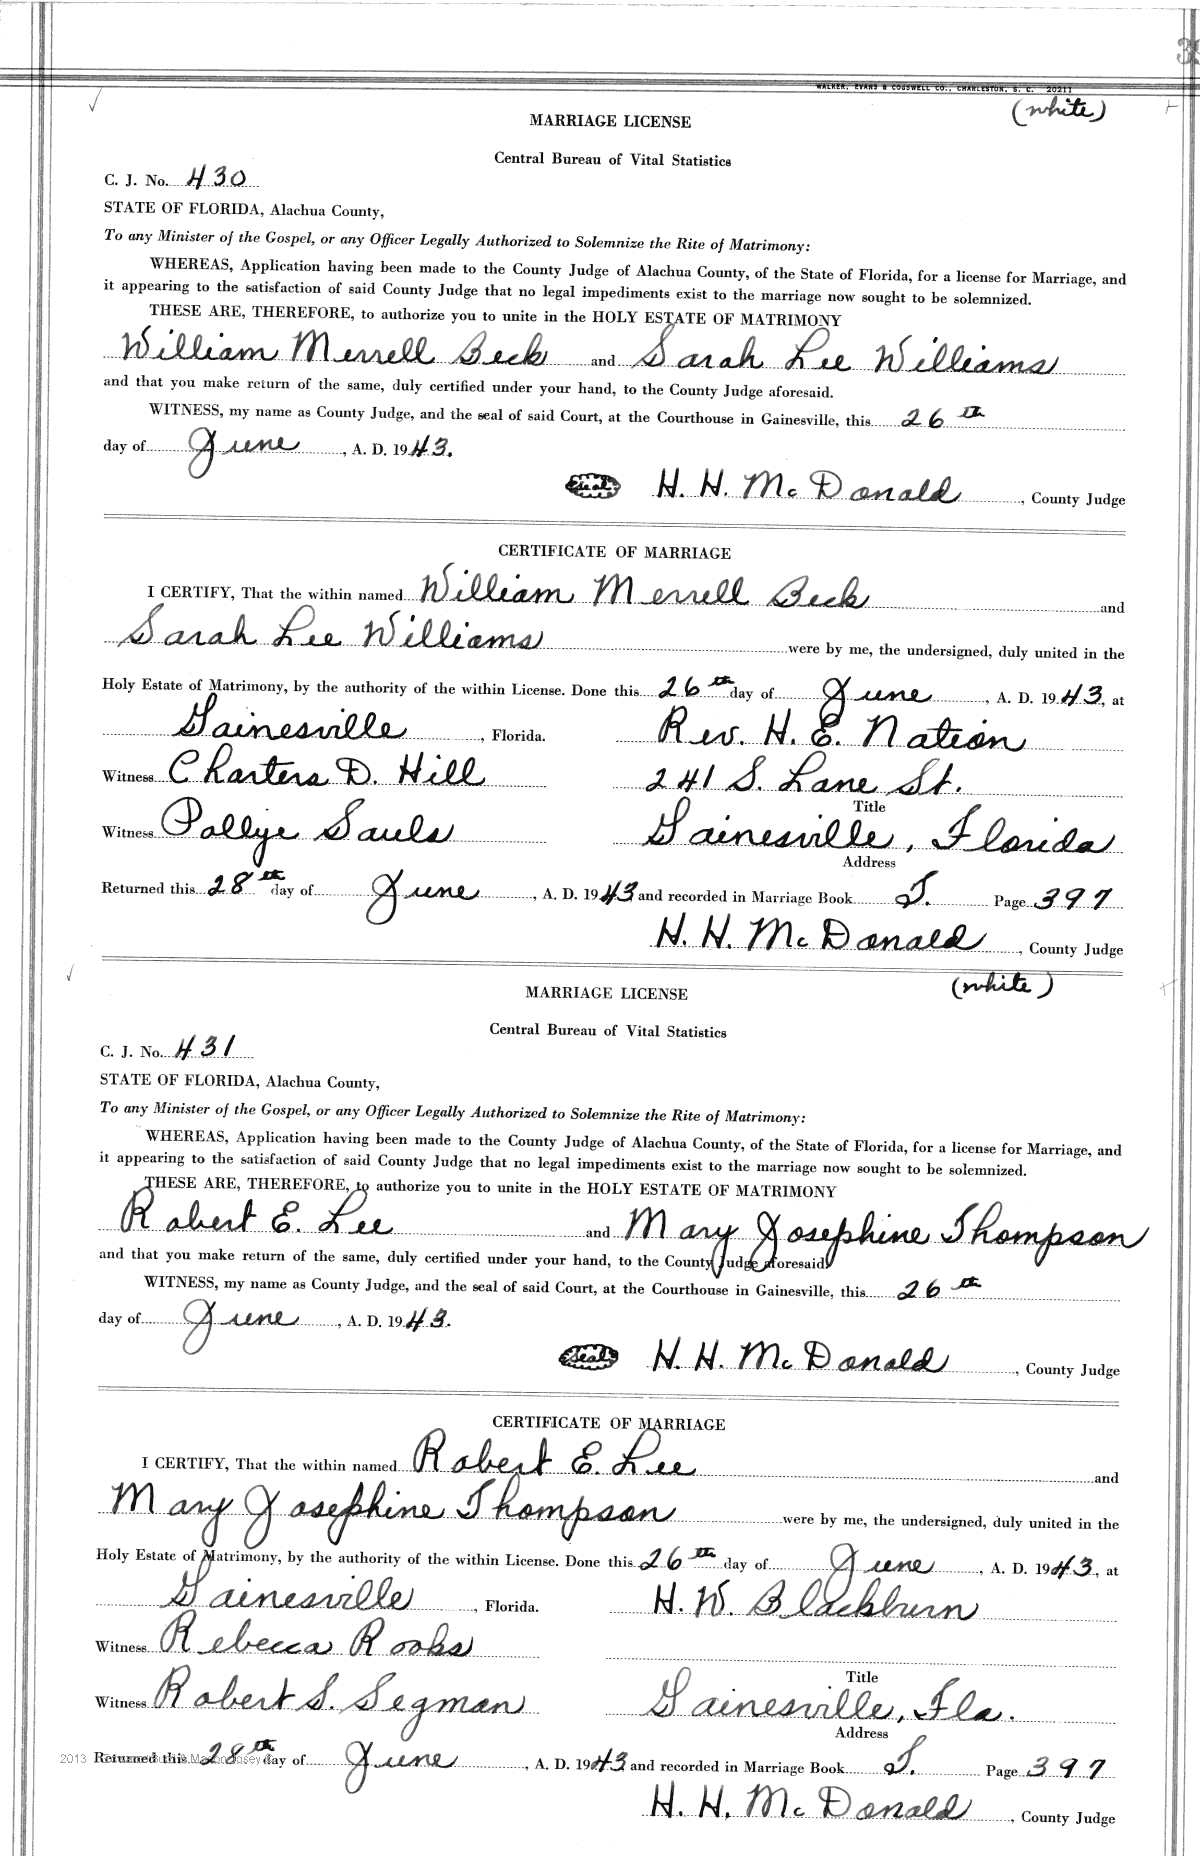 WALKER, EVANS & COGSWELL CO., CHARLESTON, S. C. 20211
(white)
MARRIAGE LICENSE
Central Bureau of Vital Statistics
C. J. No. 430
STATE OF FLORIDA, Alachua County,
To any Minister of the Gospel, or any Officer Legally Authorized to Solemnize the Rite of Matrimony:
WHEREAS, Application having been made to the County Judge of Alachua County, of the State of Florida, for a license for Marriage, and
it appearing to the satisfaction of said County Judge that no legal impediments exist to the marriage now sought to be solemnized.
THESE ARE, THEREFORE, to authorize you to unite in the HOLY ESTATE OF MATRIMONY
William Merrell Beck and Sarah Lee Williams
and that you make return of the same, duly certified under your hand, to the County Judge aforesaid.
WITNESS, my name as County Judge, and the seal of said Court, at the Courthouse in Gainesville, this 26th
day of June, A. D. 1943.
Seal H. H. McDonald, County Judge
CERTIFICATE OF MARRIAGE
I CERTIFY, That the within named William Merrell Beck and
Sarah Lee Williams were by me, the undersigned, duly united in the
Holy Estate of Matrimony, by the authority of the within License. Done this 26th day of June, A. D. 1943, at
Gainesville, Florida. Rev. H. E. Nation
Witness Charters D. Hill 241 S. Lane St.
Title
Witness Pollye Sauls Gainesville, Florida
Address
Returned this 28th day of June, A. D. 1943 and recorded in Marriage Book T. Page 397
H. H. McDonald, County Judge
(white)
MARRIAGE LICENSE
Central Bureau of Vital Statistics
C. J. No. 431
STATE OF FLORIDA, Alachua County,
To any Minister of the Gospel, or any Officer Legally Authorized to Solemnize the Rite of Matrimony:
WHEREAS, Application having been made to the County Judge of Alachua County, of the State of Florida, for a license for Marriage, and
it appearing to the satisfaction of said County Judge that no legal impediments exist to the marriage now sought to be solemnized.
THESE ARE, THEREFORE, to authorize you to unite in the HOLY ESTATE OF MATRIMONY
Robert E. Lee and Mary Josephine Thompson
and that you make return of the same, duly certified under your hand, to the County Judge aforesaid.
WITNESS, my name as County Judge, and the seal of said Court, at the Courthouse in Gainesville, this 26th
day of June, A. D. 1943.
Seal H. H. McDonald, County Judge
CERTIFICATE OF MARRIAGE
I CERTIFY, That the within named Robert E. Lee and
Mary Josephine Thompson were by me, the undersigned, duly united in the
Holy Estate of Matrimony, by the authority of the within License. Done this 26th day of June, A. D. 1943, at
Gainesville, Florida. H. W. Blackburn
Witness Rebecca Rooks
Title
Witness Robert S. Segman Gainesville, Fla.
Address
2013
Returned this 28th day of June, A. D. 1943 and recorded in Marriage Book T. Page 397
H. H. McDonald, County Judge